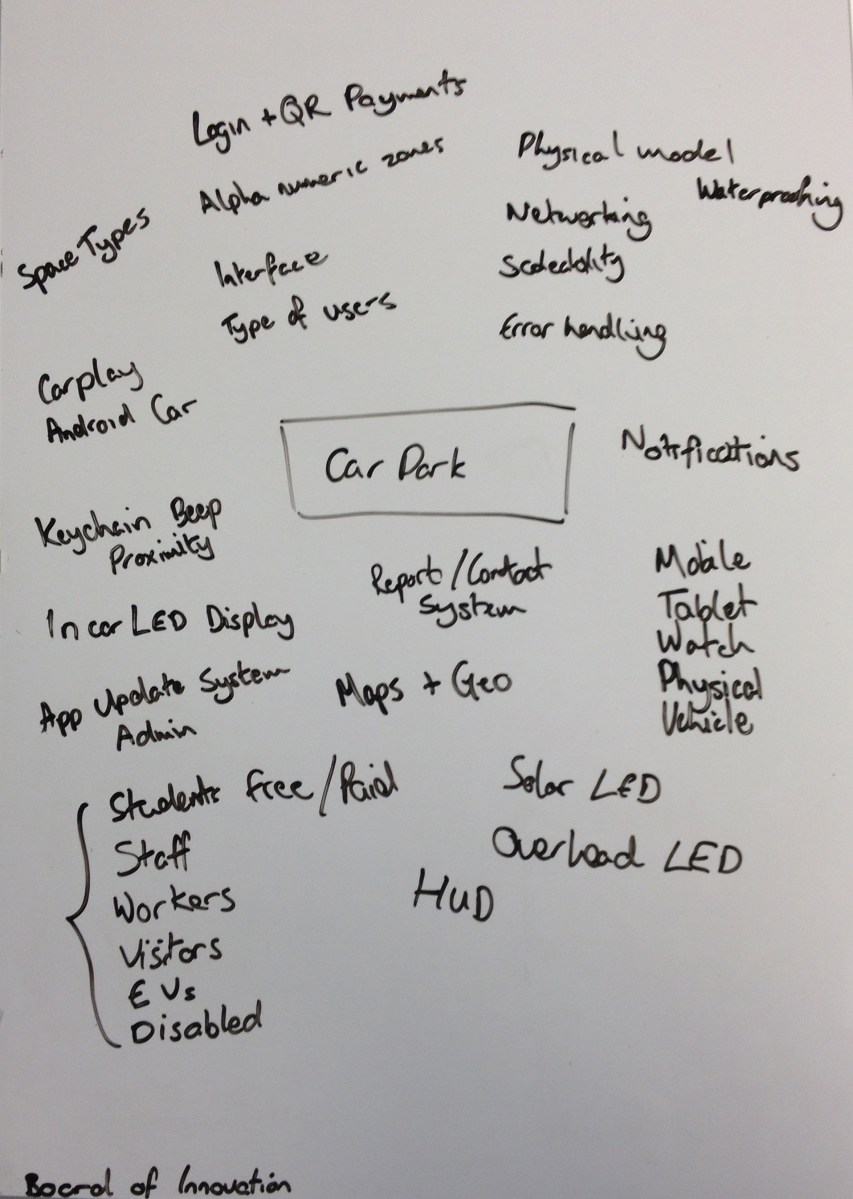 Login + QR Payments
Alpha numeric zones
Physical model
Waterproofing
Space Types
Networking
Interface
Scaleability
Type of users
Error handling
Carplay
Android Car
Car Park
Notifications
Keychain Beep
Proximity
Report/Contact
System
Mobile
Tablet
Watch
Physical
Vehicle
In car LED Display
App Update System
Admin
Maps + Geo
Students free/Paid
Staff
Workers
Visitors
EVs
Disabled
Solar LED
Overhead LED
HUD
Board of Innovation